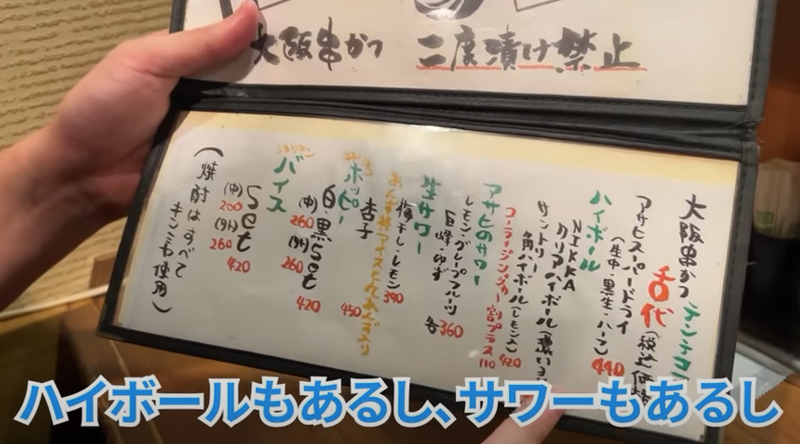 大阪串かつ 二度漬け禁止
大阪串かつ テンテコ
舌代(税込価格
アサヒスーパードライ
(生中・黒生・ハーフ) 440
ハイボール
NIKKA
クリアハイボール(濃い
サントリー
角ハイボール(レモン入) 420
コーラ・ジンジャー割プラス 110
アサヒのサワー
レモン・グレープフルーツ
巨峰・ゆず 各360
生サワー
梅干し・レモン 390
杏子 450
ホッピー
白・黒set 420
(中) 260 (外) 260
バイス
set 420
(中) 260 (外) 260
(焼酎はすべて
キンミヤ使用)
ハイボールもあるし、サワーもあるし